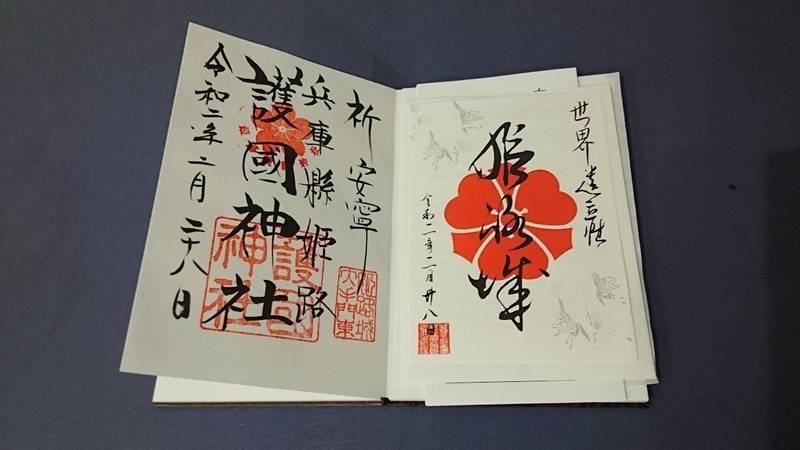 世界遺産
姫路城
令和二年二月廿八日
祈安寧
兵庫縣姫路
護國神社
令和二年二月二十八日
護国
神社
姫路城
大手門東